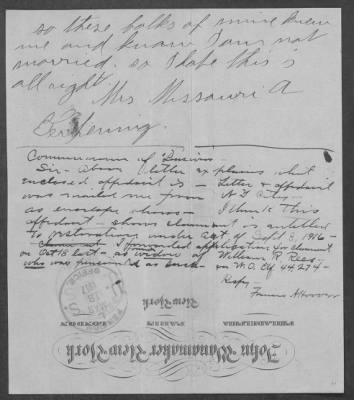 so these folks of mine knew
me and know I am not
married. so I hope this is
all right.
Mrs Missouri A
Commissioner of Pensions
Sir - Above letter explains what
enclosed affidavit is - Letter & affidavit
was mailed me from N.Y. City
as envelope shows - I think This
affidavit shows claimant is entitled
to restoration under act of Sept 8, 1916 -
I forwarded application for claimant
on Oct 18 last - as widow of William R. Rees
who was pensioned as such - on W.O. Ctf 44,274 -
Respy
Francis A Hoover
New York
PHILADELPHIA PARIS LONDON
John Wanamaker New York